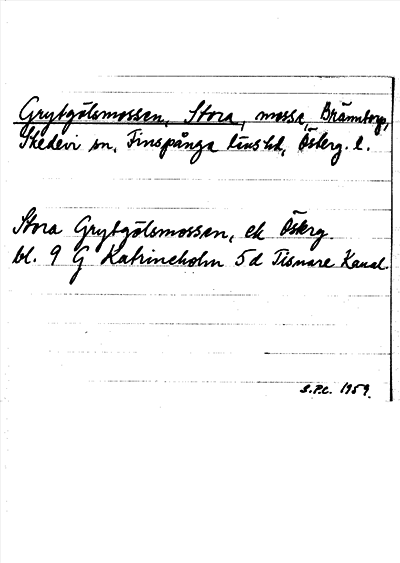 Grytgölsmossen, Stora, mosse, Bränntorp,
Skedevi sn, Finspånga länshd, Österg. l.
Stora Grytgölsmossen, ek Österg
bl. 9 G Katrineholm 5d Tisnare Kanal.
S.P.C. 1959.